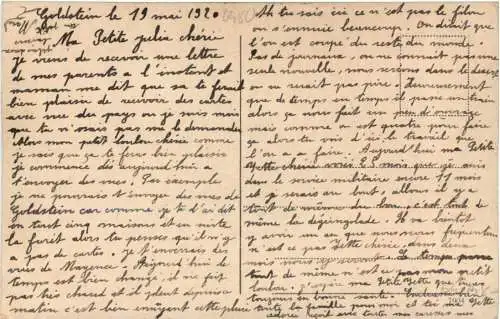 Goldstein le 19 mai 192
Ma Petite julia chérie
Je viens de recevoir une lettre
de mes parents a l'instant et
maman me dit que sa te ferait
bien plaisir de recevoir des cartes
avec vue des pays ou je suis mais
que tu n'osais pas me le demander
Alors mon petit loulou chérie comme
je sais que ça te fera bien plaisir
je commence dès aujourd'hui a
t'envoyer des vues. Par exemple
je ne pourrait t'envoyer des vues de
Goldstein car comme je te l'ai dit
on tant cinq maisons et en suite
la forêt alors tu penses qu'il n'y
a pas de cartes. Je t'enverrais des
vues de Mayence. Aujourd'hui le
temps est bien changé, il ne fait
pas très chaud et il pleut depuis
matin c'est bien ennuyant cette pluie
Ah tu sais ici ce n'est pas le filon
on s'ennuie beaucoup. On dirait que
l'on est coupé du reste du monde.
Pas de journaux, on ne connait pas une
seule nouvelle, nous serions dans le désert
on ne serait pas pire. Heureusement
que de temps en temps il passe un train
alors ça nous fait un peu d'ouvrage
mais comme on est quatre pour faire
ça alors tu vois d'ici le travail que
l'on a a faire. Aujourd'hui ma Petite
Jette chérie voici mois que je suis
au service militaire encore 11 mois
et je serais au bout, allons il y a
tout de même du bon, c'est tout de
même la dégringolade. Il va bientôt
y avoir un an que nous nous fréquentions
n'est ce pas Jette chérie, dans deux
mois le temps passe
tout de même n'est ce pas mon petit
loulou. J'espère ma Petite Jette que tu es
toujours en bonne santé.
toute la famille pour moi et toi ma Jette